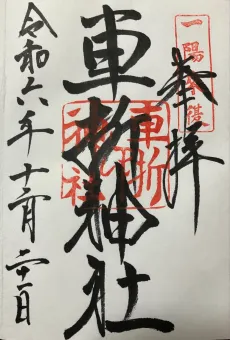 一陽来復
奉拝
車折神社
車折神社
令和六年十二月二十一日